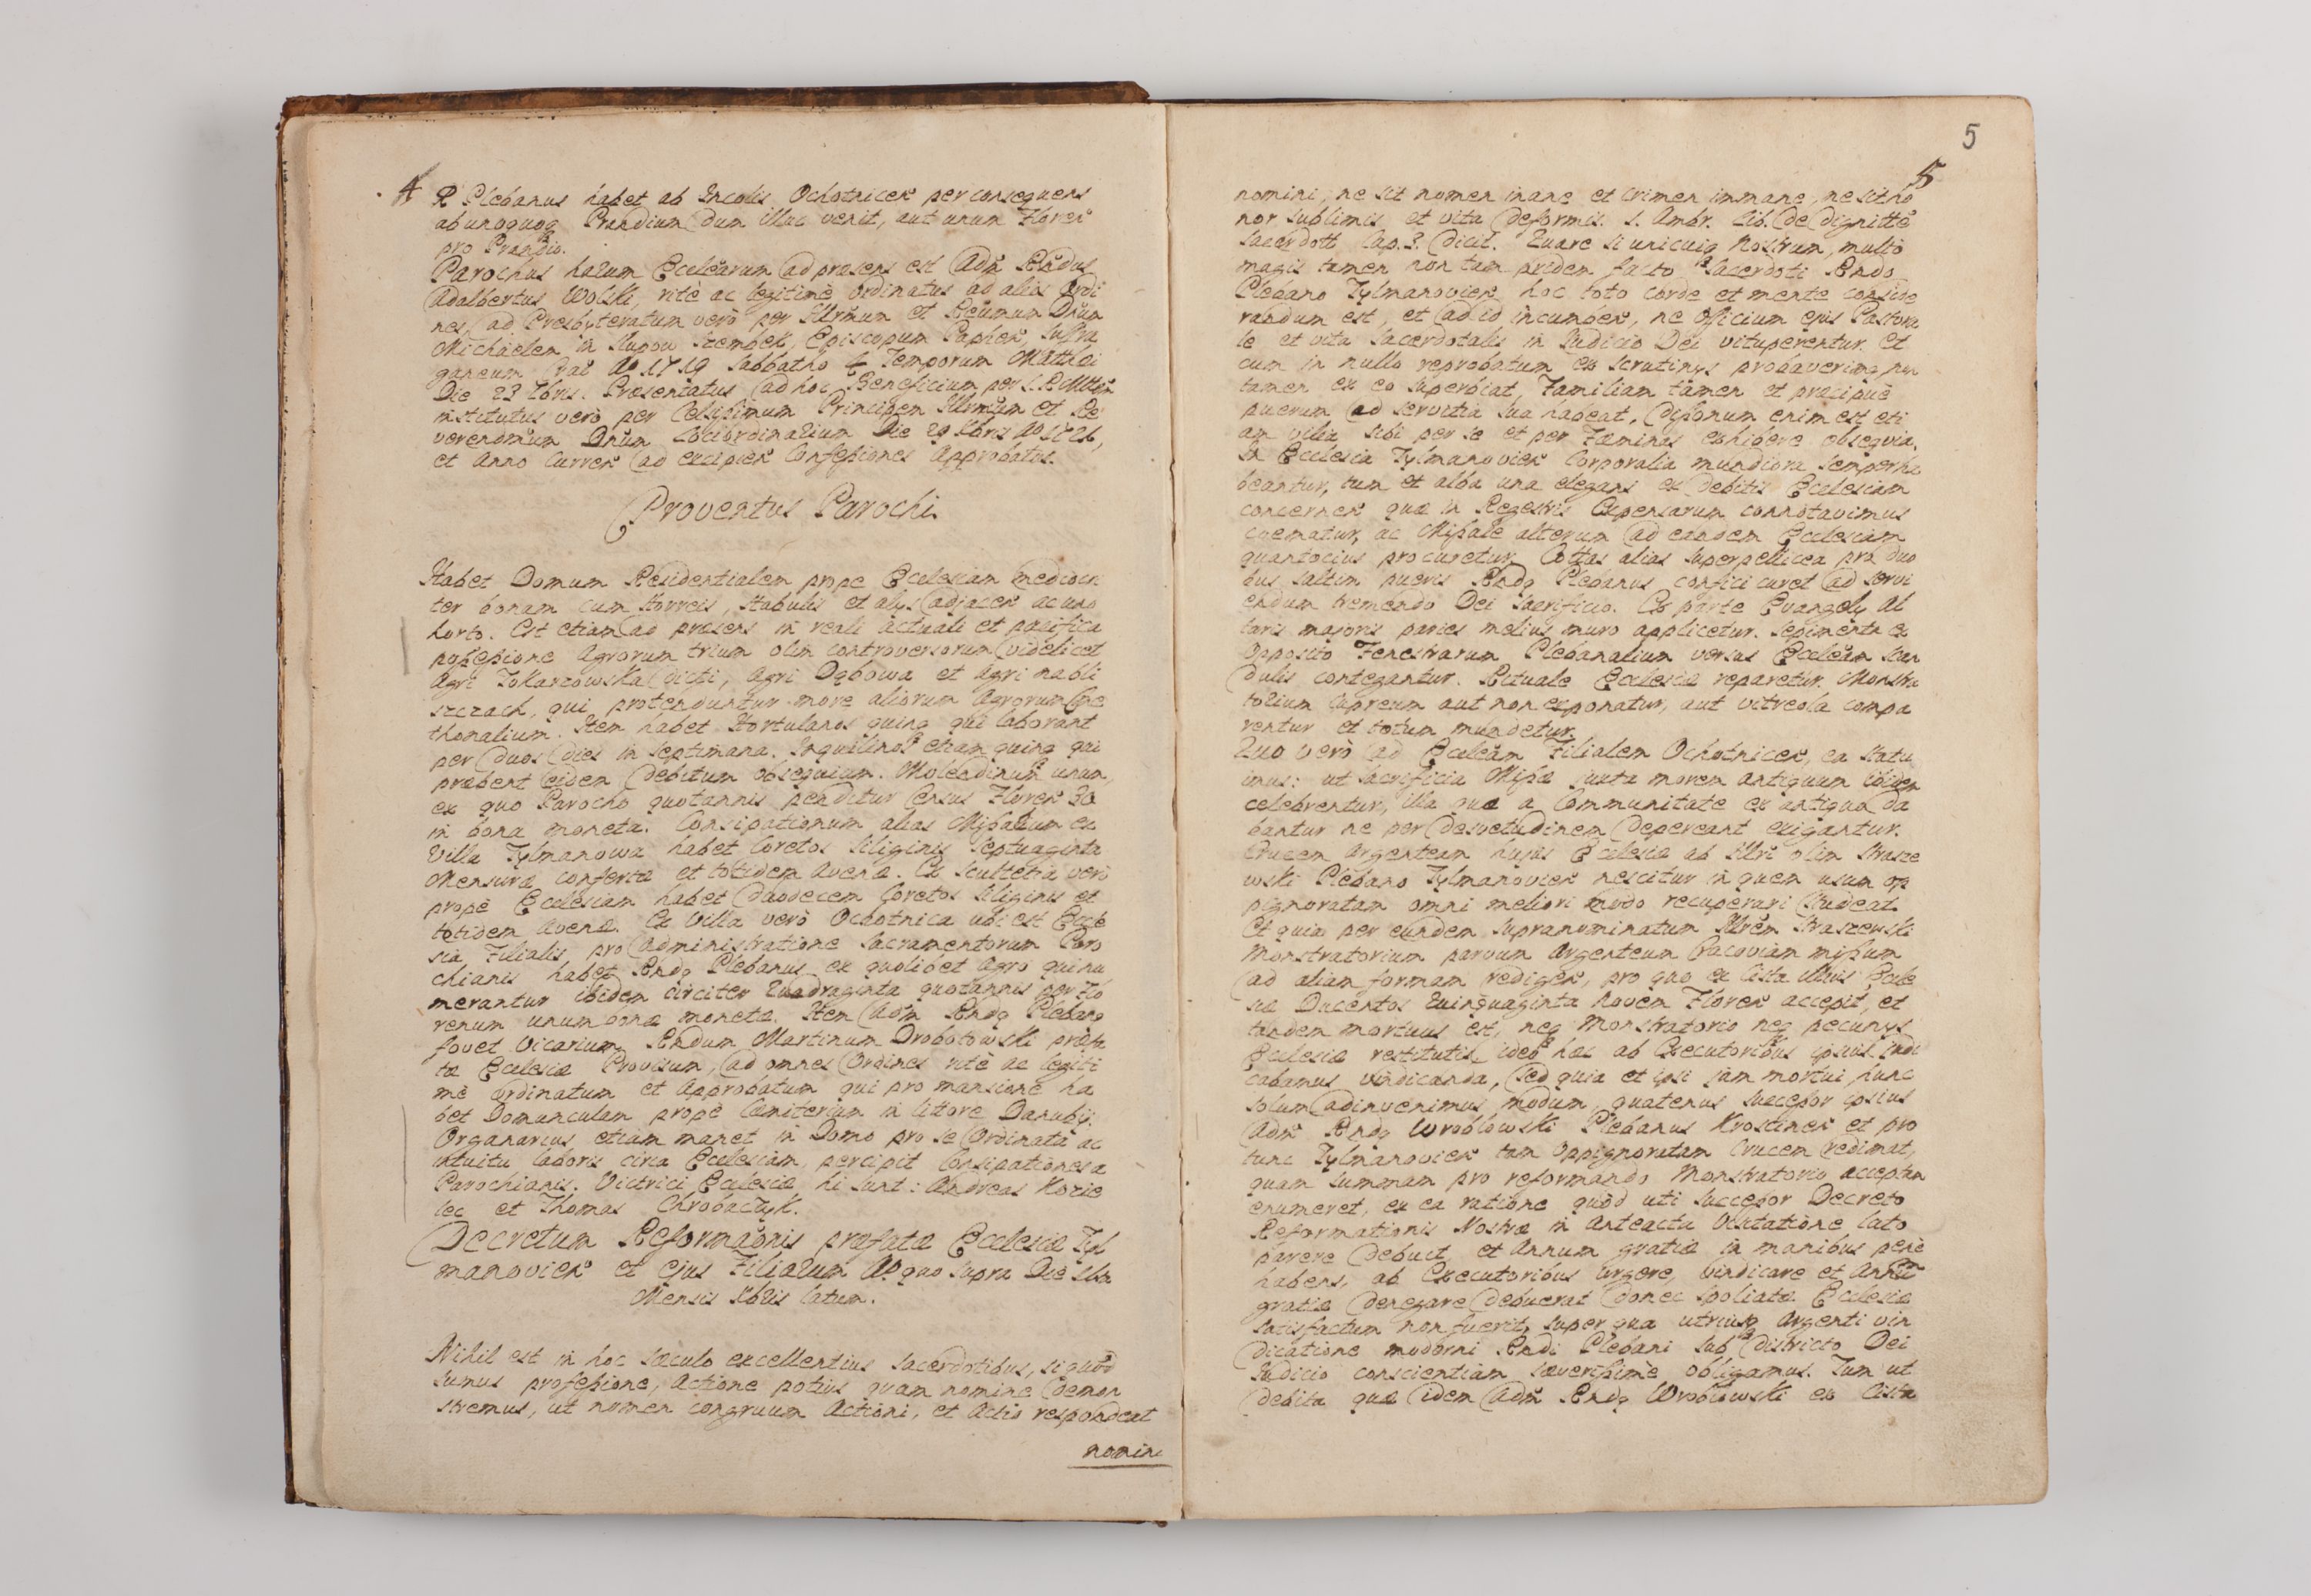 4
R Plebanus habet ab Incolis Ochotnicen per consequens
ab unoquoq Prandium dum illuc venit, aut unum Floren
pro Prandio.
Parochus harum Ecclearum ad præsens est Adm Rndus
Adalbertus Wolski, ritè ac legitimè ordinatus ad alios Ordi
nes, ad Presbyteratum verò per Illrmum et Reumum Dnum
Michaelem in Slupow Szembek, Episcopum Paphen, Suffra
ganeum Crac Ao 1719 Sabbatho 4 Temporum Matthæi
Die 23 7bris. Præsentatus ad hoc Beneficium per
institutus verò per Celsissimum Principem Illrmum et Re
verendmum Dnum Lociordinarium Die 29 Ao
et Anno Curren ad excipien Confessiones Approbatus.
Proventus Parochi
Habet Domum Residentialem prope Ecclesiam mediocri
ter bonam cum Horreis, stabulis et alys adjacen ac uno
horto. Est etiam ad præsens in reali actuali et pacifica
possessione Agrorum trium olim controversorum videlicet
Agri Tokarzowska dicti, Agri Dębowa et Agri nabli
szczach, qui protenduntur more aliorum Agrorum Cme
thonalium. Item habet Hortulanos quinq qui laborant
per duos dies in septimana. Inquilinos etiam quinq qui
præbent eidem debitum obsequium. Molendinum unum,
ex quo Parocho quotannis penditur Census Floren 30
in bona moneta. Consipationum alias Missalium ex
Villa Tylmanowa habet Coretos Siliginis Septuaginta
Mensuræ confertæ et totidem Avenæ. Ex Scultetia verò
propè Ecclesiam habet duodecem Coretos Siliginis et
totidem Avenæ. Ex Villa verò Ochotnica ubi est Eccle
sia Filialis, pro Administratione Sacramentorum Paro
chianis habet Rndq Plebanus ex quolibet Agro qui nu
merantur ibidem circiter Quadraginta quotannis per Flo
renum unum bonæ monetæ. Item Adm Rndq Plebanq
fovet Vicarium Rndum Martinum Drobotowski præfa
tæ Ecclesiæ Provisum, ad omnes Ordines ritè ac legiti
mè ordinatum et Approbatum qui pro mansione ha
bet Domunculam propè Cæmiterium in littore Danubij.
Organarius etiam manet in Domo pro se Ordinata ac
intuitu laboris circa Ecclesiam, percipit Consipationes a
Parochianis. Victrici Ecclesiæ hi sunt: Andreas Kozie
lec et Thomas Chrobaczyk.
Decretum Reformaonis præfatæ Ecclesiæ Tyl
manovien et ejus Filialium Ao quo supra Die
Mensis latum.
Nihil est in hoc sæculo excellentius sacerdotibus, si quod
sumus professione, actione potius quam nomine demon
stremus, ut nomen congruum Actioni, et Actio respondeat
nomini
5
5
nomini, ne sit nomen inane et crimen immane, ne sit ho
nor sublimis et vita deformis. S. Ambr. Lib. de dignitte
Sacerdott Cap. 3. dicit. Quare si unicuiq Nostrum, multo
magis tamen non tam pridem facto Sacerdoti Rndo
Plebano Tylmanovien hoc toto corde et mente conside
randum est, et ad id incumben, ne Officium ejus Pastora
le et vita Sacerdotalis in Judicio Dei vituperentur Et
cum in nullo reprobatum ex scrutinys probaverimq non
tamen ex eo superbiat, Familiam tamen et præcipuè
puerum ad servitia sua habeat, dissonum enim est eti
am vilia sibi per se et per Fæminas exhibere obsequia.
In Ecclesia Tylmanovien Corporalia mundiora semper ha
beantur, tum et alba una elegans ex debitis Ecclesiam
concernen quæ in Regestris Expensarum connotavimus
coematur, ac Missale alterum ad eandem Ecclesiam
quantocius procuretur. Cottas alias superpellicea pro duo
bus saltim pueris Rndq Plebanus confici curet ad servi
endum tremendo Dei Sacrificio. Ex parte Evangely Al
taris majoris paries melius muro applicetur. Sepimenta ex
opposito Fenestrarum Plebanalium versus Eccleam scan
dulis contegantur. Rituale Ecclesiæ reparetur. Monstra
torium Cupreum aut non exponatur, aut vitreola compa
rentur et totum mundetur.
Quo verò ad Eccleam Filialem Ochotnicen, ea statu
imus: ut sacrificia Missæ juxta morem antiquum ibidem
celebrentur, illa quæ a Communitate ex antiquo da
bantur ne per desuetudinem depereant exigantur.
Crucem Argenteam hujus Ecclesiæ ab Illri olim Strasze
wski Plebano Tylmanovien nescitur in quem usum op
pignoratam omni meliori modo recuperari studeat.
Et quia per eundem supranominatum Illrem Straszewski
Monstratorium parvum Argenteum Cracoviam missum
ad aliam formam redigen, pro quo ex Cista illius Eccle
siæ Ducentos Quinquaginta novem Floren accepit, et
tandem mortuus est, neq Monstratorio neq pecunys
Ecclesiæ restitutis, ideo hæc ab Executoribus ipsius indi
cabamus vindicanda, sed quia et ipsi jam mortui, hunc
solum adinvenimus modum, quatenus Successor ipsius
Adm Rndq Wroblowski Plebanus Krostinen et pro
tunc Tylmanovien tam Oppignoratam Crucem redimat,
quam summam pro reformando Monstratorio acceptam
enumeret, ex ea ratione quod uti Successor Decreto
Reformationis Nostræ in anteacta Visitatione lato
parere debuit, et Annum gratiæ in manibus penè
habens, ab Executoribus urgere, vindicare et Annum
gratiæ denegare debuerat donec spoliatæ Ecclesiæ
satisfactum non fuerit, super qua utriusq Argenti vin
dicatione moderni Rndi Plebani sub districto Dei
Judicio conscientiam severissimè obligamus. Tum ut
debita quæ idem Adm Rndq Wroblowski ex Cista